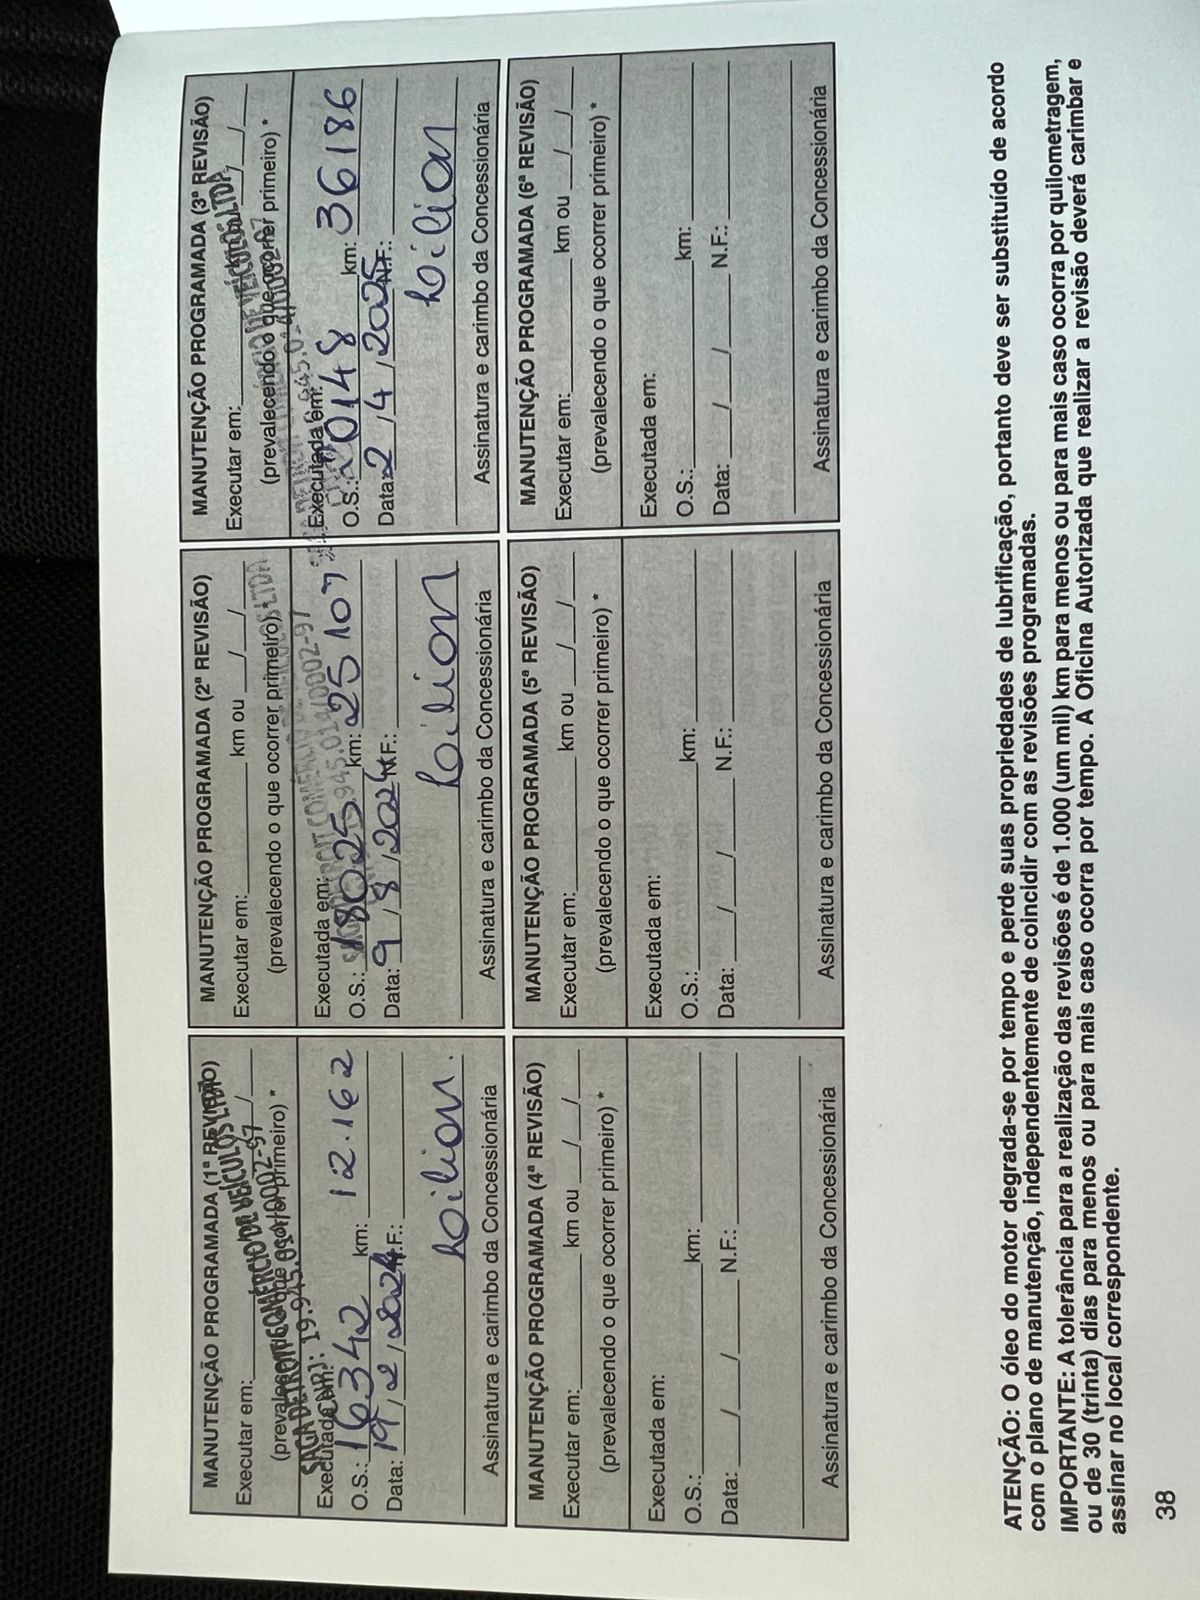 MANUTENÇÃO PROGRAMADA (1ª REVISÃO)
Executar em:
(prevalecendo o que ocorrer primeiro) *
SAGA DETROIT COMÉRCIO DE VEÍCULOS LTDA
CNPJ: 19.945.014/0002-97
Executada em:
O.S.: 16342 km: 12.162
Data: 19/2/2024 N.F.:
Assinatura e carimbo da Concessionária
MANUTENÇÃO PROGRAMADA (2ª REVISÃO)
Executar em: km ou / /
(prevalecendo o que ocorrer primeiro) *
Executada em:
O.S.: 18025 km: 25107
Data: 9/8/2024 N.F.:
Assinatura e carimbo da Concessionária
MANUTENÇÃO PROGRAMADA (3ª REVISÃO)
Executar em: km ou / /
(prevalecendo o que ocorrer primeiro) *
Executada em:
O.S.: 20148 km: 36186
Data: 2/4/2025 N.F.:
Assinatura e carimbo da Concessionária
MANUTENÇÃO PROGRAMADA (4ª REVISÃO)
Executar em: km ou / /
(prevalecendo o que ocorrer primeiro) *
Executada em:
O.S.: km:
Data: / / N.F.:
Assinatura e carimbo da Concessionária
MANUTENÇÃO PROGRAMADA (5ª REVISÃO)
Executar em: km ou / /
(prevalecendo o que ocorrer primeiro) *
Executada em:
O.S.: km:
Data: / / N.F.:
Assinatura e carimbo da Concessionária
MANUTENÇÃO PROGRAMADA (6ª REVISÃO)
Executar em: km ou / /
(prevalecendo o que ocorrer primeiro) *
Executada em:
O.S.: km:
Data: / / N.F.:
Assinatura e carimbo da Concessionária
ATENÇÃO: O óleo do motor degrada-se por tempo e perde suas propriedades de lubrificação, portanto deve ser substituído de acordo
com o plano de manutenção, independentemente de coincidir com as revisões programadas.
IMPORTANTE: A tolerância para a realização das revisões é de 1.000 (um mil) km para menos ou para mais caso ocorra por quilometragem,
ou de 30 (trinta) dias para menos ou para mais caso ocorra por tempo. A Oficina Autorizada que realizar a revisão deverá carimbar e
assinar no local correspondente.
38